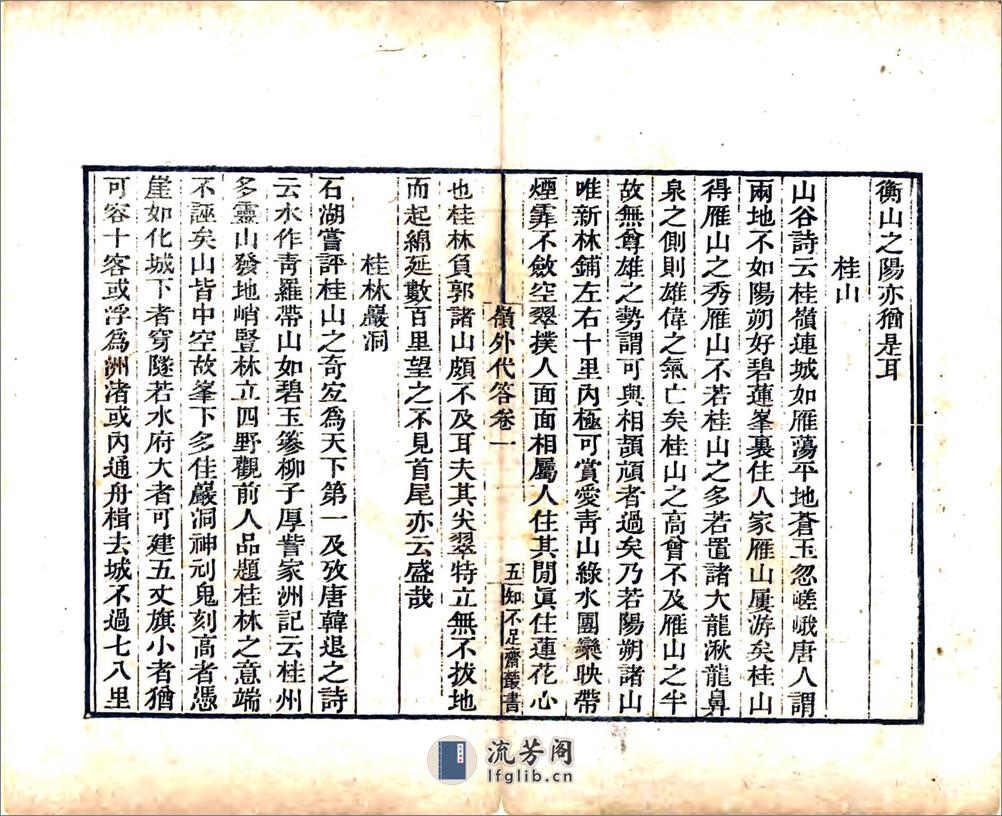 衡山之陽亦猶是耳
桂山
山谷詩云桂嶺連城如雁蕩平地蒼玉忽嵯峨唐人謂
兩地不如陽朔好碧蓮峯裏住人家雁山屢游矣桂山
得雁山之秀雁山不若桂山之多若置諸大龍湫龍鼻
泉之側則雄偉之氣亡矣桂山之高曾不及雁山之半
故無尊雄之勢謂可與相頡頏者過矣乃若陽朔諸山
唯新林鋪左右十里內極可賞愛青山綠水團欒映帶
煙霏不斂空翠撲人面面相屬人住其閒眞住蓮花心
嶺外代答卷一
五
知不足齋叢書
也桂林負郭諸山頗不及耳夫其尖翠特立無不拔地
而起綿延數百里望之不見首尾亦云盛哉
桂林巖洞
石湖嘗評桂山之奇宜爲天下第一及攷唐韓退之詩
云水作青羅帶山如碧玉篸柳子厚訾家洲記云桂州
多靈山發地峭豎林立四野觀前人品題桂林之意端
不誣矣山皆中空故峯下多佳巖洞神刓鬼刻高者憑
崖如化城下者穿隧若水府大者可建五丈旗小者猶
可容十客或浮爲洲渚或內通舟楫去城不過七八里
流芳阁
lfglib.cn